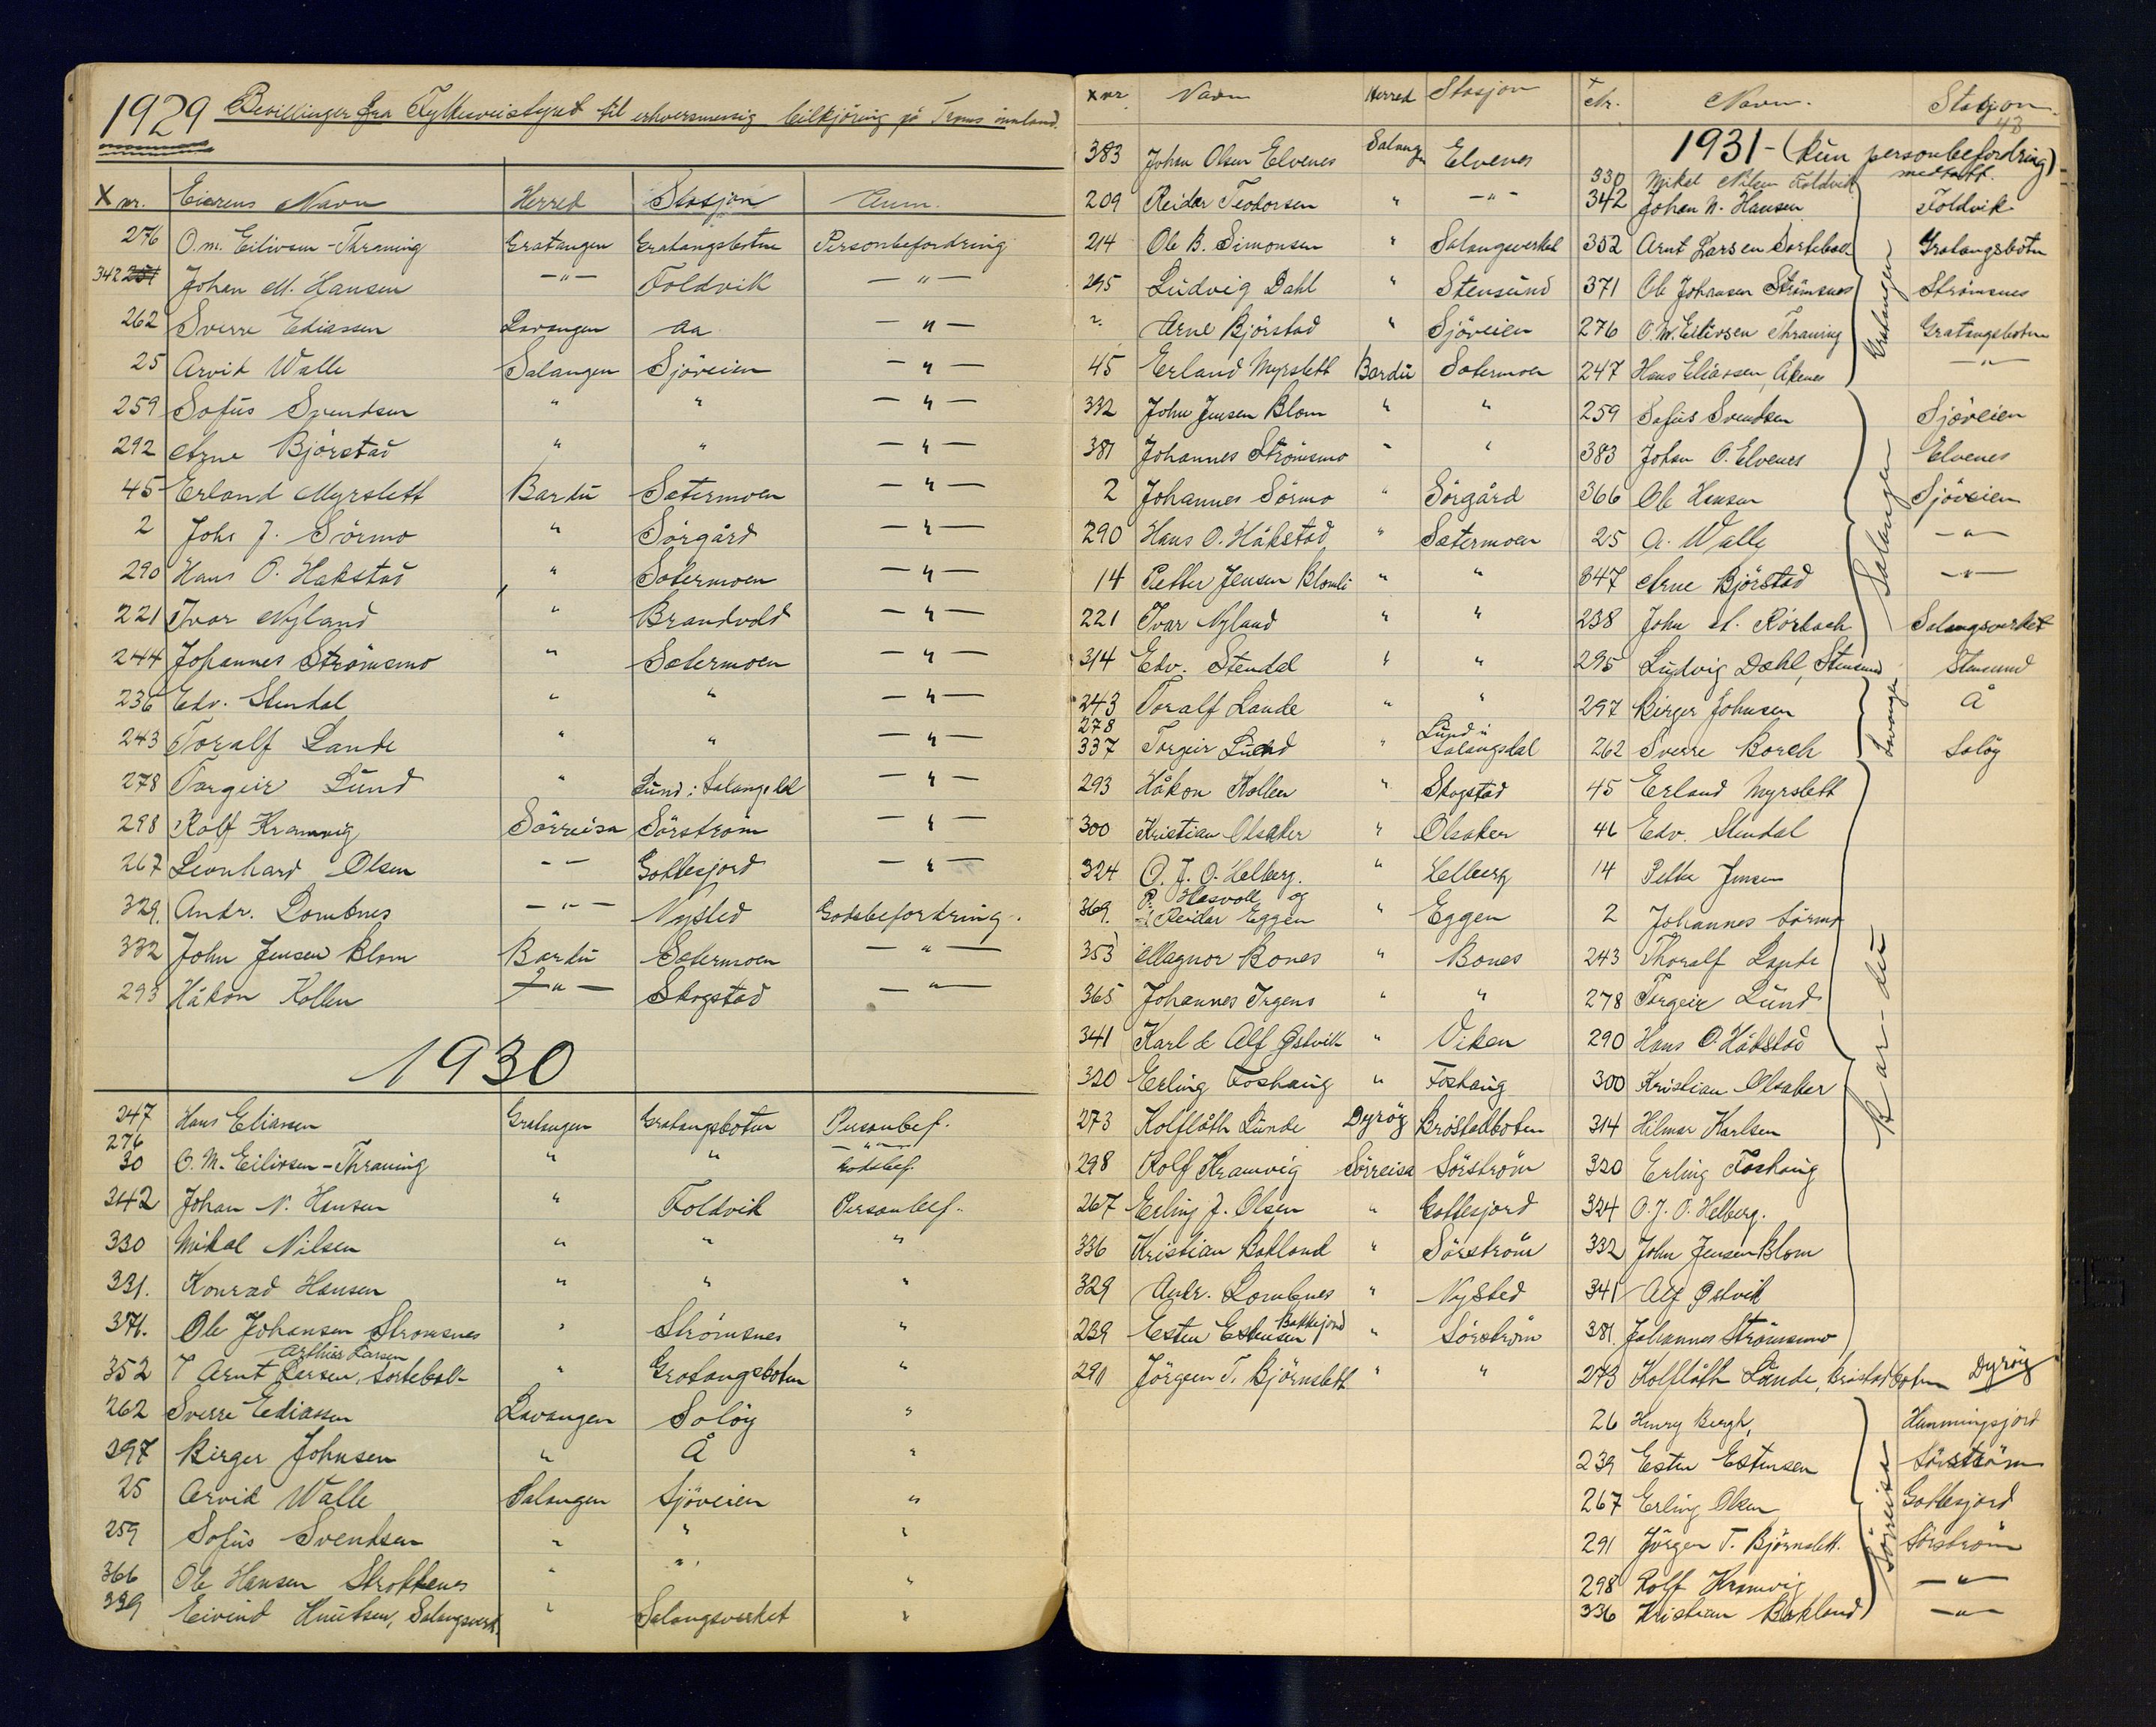 1929 Bevillinger fra Fylkesveistyret til erhversmessig bilkjöring på Troms innland.
X nr. Eierens Navn Herred Stasjon Anm.
276 O.m. Eilivsen-Thraning Gratangen Gratangsbotn Personbefordring
342 251 Johan M. Hansen —"— Foldvik —"—
262 Sverre Ediassen Lavangen aa —"—
25 Arvid Walle Salangen Sjöveien —"—
259 Sofus Svendsen " " —"—
292 Arne Björstad " " —"—
45 Erland Myrslett Bardu Setermoen —"—
2 Johs J. Sörmo " Sörgård —"—
290 Hans O. Hakstad " Setermoen —"—
221 Ivar Nyland " Brandvold —"—
244 Johannes Strömsmo " Setermoen —"—
236 Edv. Stendal " " —"—
243 Toralf Lande " " —"—
278 Torgeir Lund " Lund i Salangsdal —"—
298 Rolf Kramvig Sörreisa Sörström —"—
267 Leonhard Olsen —"— Gottesjord —"—
329. Andr. Lombnes —"— Nysted Godsbefordring.
332 John Jensen Blom Bardu Setermoen —"—
293 Håkon Kollen —"— Skogstad —"—
1930
247 Hans Eliassen Gratangen Gratangsbotn Personbef.
276 —"—
30 O. M. Eilivsen-Thraning " " Godsbef.
342 Johan N. Hansen " Foldvik Personbef.
330 Mikal Nilsen " " "
331. Konrad Hansen " " "
371. Ole Johansen Stromsnes " Strömsnes "
Arthur Larsen
352 Arnt Larsen, Sortebal- " Gratangsbotn "
262 Sverre Ediassen Lavangen Solöy "
297 Birger Johnsen " Å "
25 Arvid Walle Salangen Sjöveien "
259 Sofus Svendsen " " "
366 Ole Hansen Strokkenes " " "
339 Eivind Knutsen, Salangsverk. " Salangsverket "
X nr Navn Herred Stasjon
383 Johan Olsen Elvenes Salangen Elvenes
209 Reidar Teodorsen " —"—
214 Ole B. Simonsen " Salangsverket
295 Ludvig Dahl " Stensund
". Arne Björstad " Sjöveien
45 Erland Myrslett Bardu Setermoen
332 John Jensen Blom " "
381 Johannes Strömsmo " "
2 Johannes Sörmo " Sörgård
290 Hans O. Håkstad " Setermoen
14 Petter Jensen Blomli " "
221 Ivar Nyland " "
314 Edv. Stendal " "
243 Toralf Lande " "
278 Lund i
337 Torgeir Lund " Salangsdal
293 Håkon Kollen " Skogstad
300 Kristian Olsaker " Olsaker
324 O. J. O. Helberg. " Helberg
P. Hasvoll og
369. Reidar Eggen " Eggen
353 Magnor Bones " Bones
365 Johannes Irgens " "
341 Karl & Alf Østvik " Viken
320 Erling Foshaug " Foshaug
273 Kolflåth Lunde Dyröy Bröstadbotn
298 Rolf Kramvig Sörreisa Sörström
267 Erling J. Olsen " Gottesjord
336 Kristian Bakland " Sörström
329 Andr. Lombnes " Nysted
239 Esten Estensen Bakkejord " Sörström
291 Jörgen T. Björnslett " "
X Nr. Navn. Stasjon
43
1931 - (kun personbefordring)
medtatt.
330 Mikal Nilsen Foldvik
342 Johan N. Hansen Foldvik
352 Arnt Larsen Sortebal Gratangsbotn
371 Ole Johansen Strömsnes Strömsnes
276 O. M. Eilivsen Thraning Gratangsbotn
247 Hans Eliassen, Åsenes —"—
Gratangen
259 Sofus Svendsen Sjöveien
383 Johan O. Elvenes Elvenes
366 Ole Hansen Sjöveien
25 A. Walle —"—
347 Arne Björstad —"—
238 John A. Rörbach Salangsverket
295 Ludvig Dahl, Stensund Stensund
Salangen
297 Birger Johnsen Å
262 Sverre Borch Solöy
Lavangen
45 Erland Myrslett
46 Edv. Stendal
14 Petter Jensen
2 Johannes Sörmo
243 Thoralf Lande
278 Torgeir Lund
290 Hans O. Håkstad
300 Kristian Olsaker
314 Hilmar Karlsen
320 Erling Foshaug
324 O. J. O. Helberg.
332 John Jensen Blom
341 Alf Østvik
381. Johannes Strömsmo
Bar-du
273 Kolflåth Lunde, Bröstadbotn Dyröy
26 Henry Bergh, Hemmingsjord
239 Esten Estensen Sörström
267 Erling Olsen Gottesjord
291 Jörgen T. Björnslett. Sörström
298 Rolf Kramvig —"—
336 Kristian Bakland —"—
Sörreisa